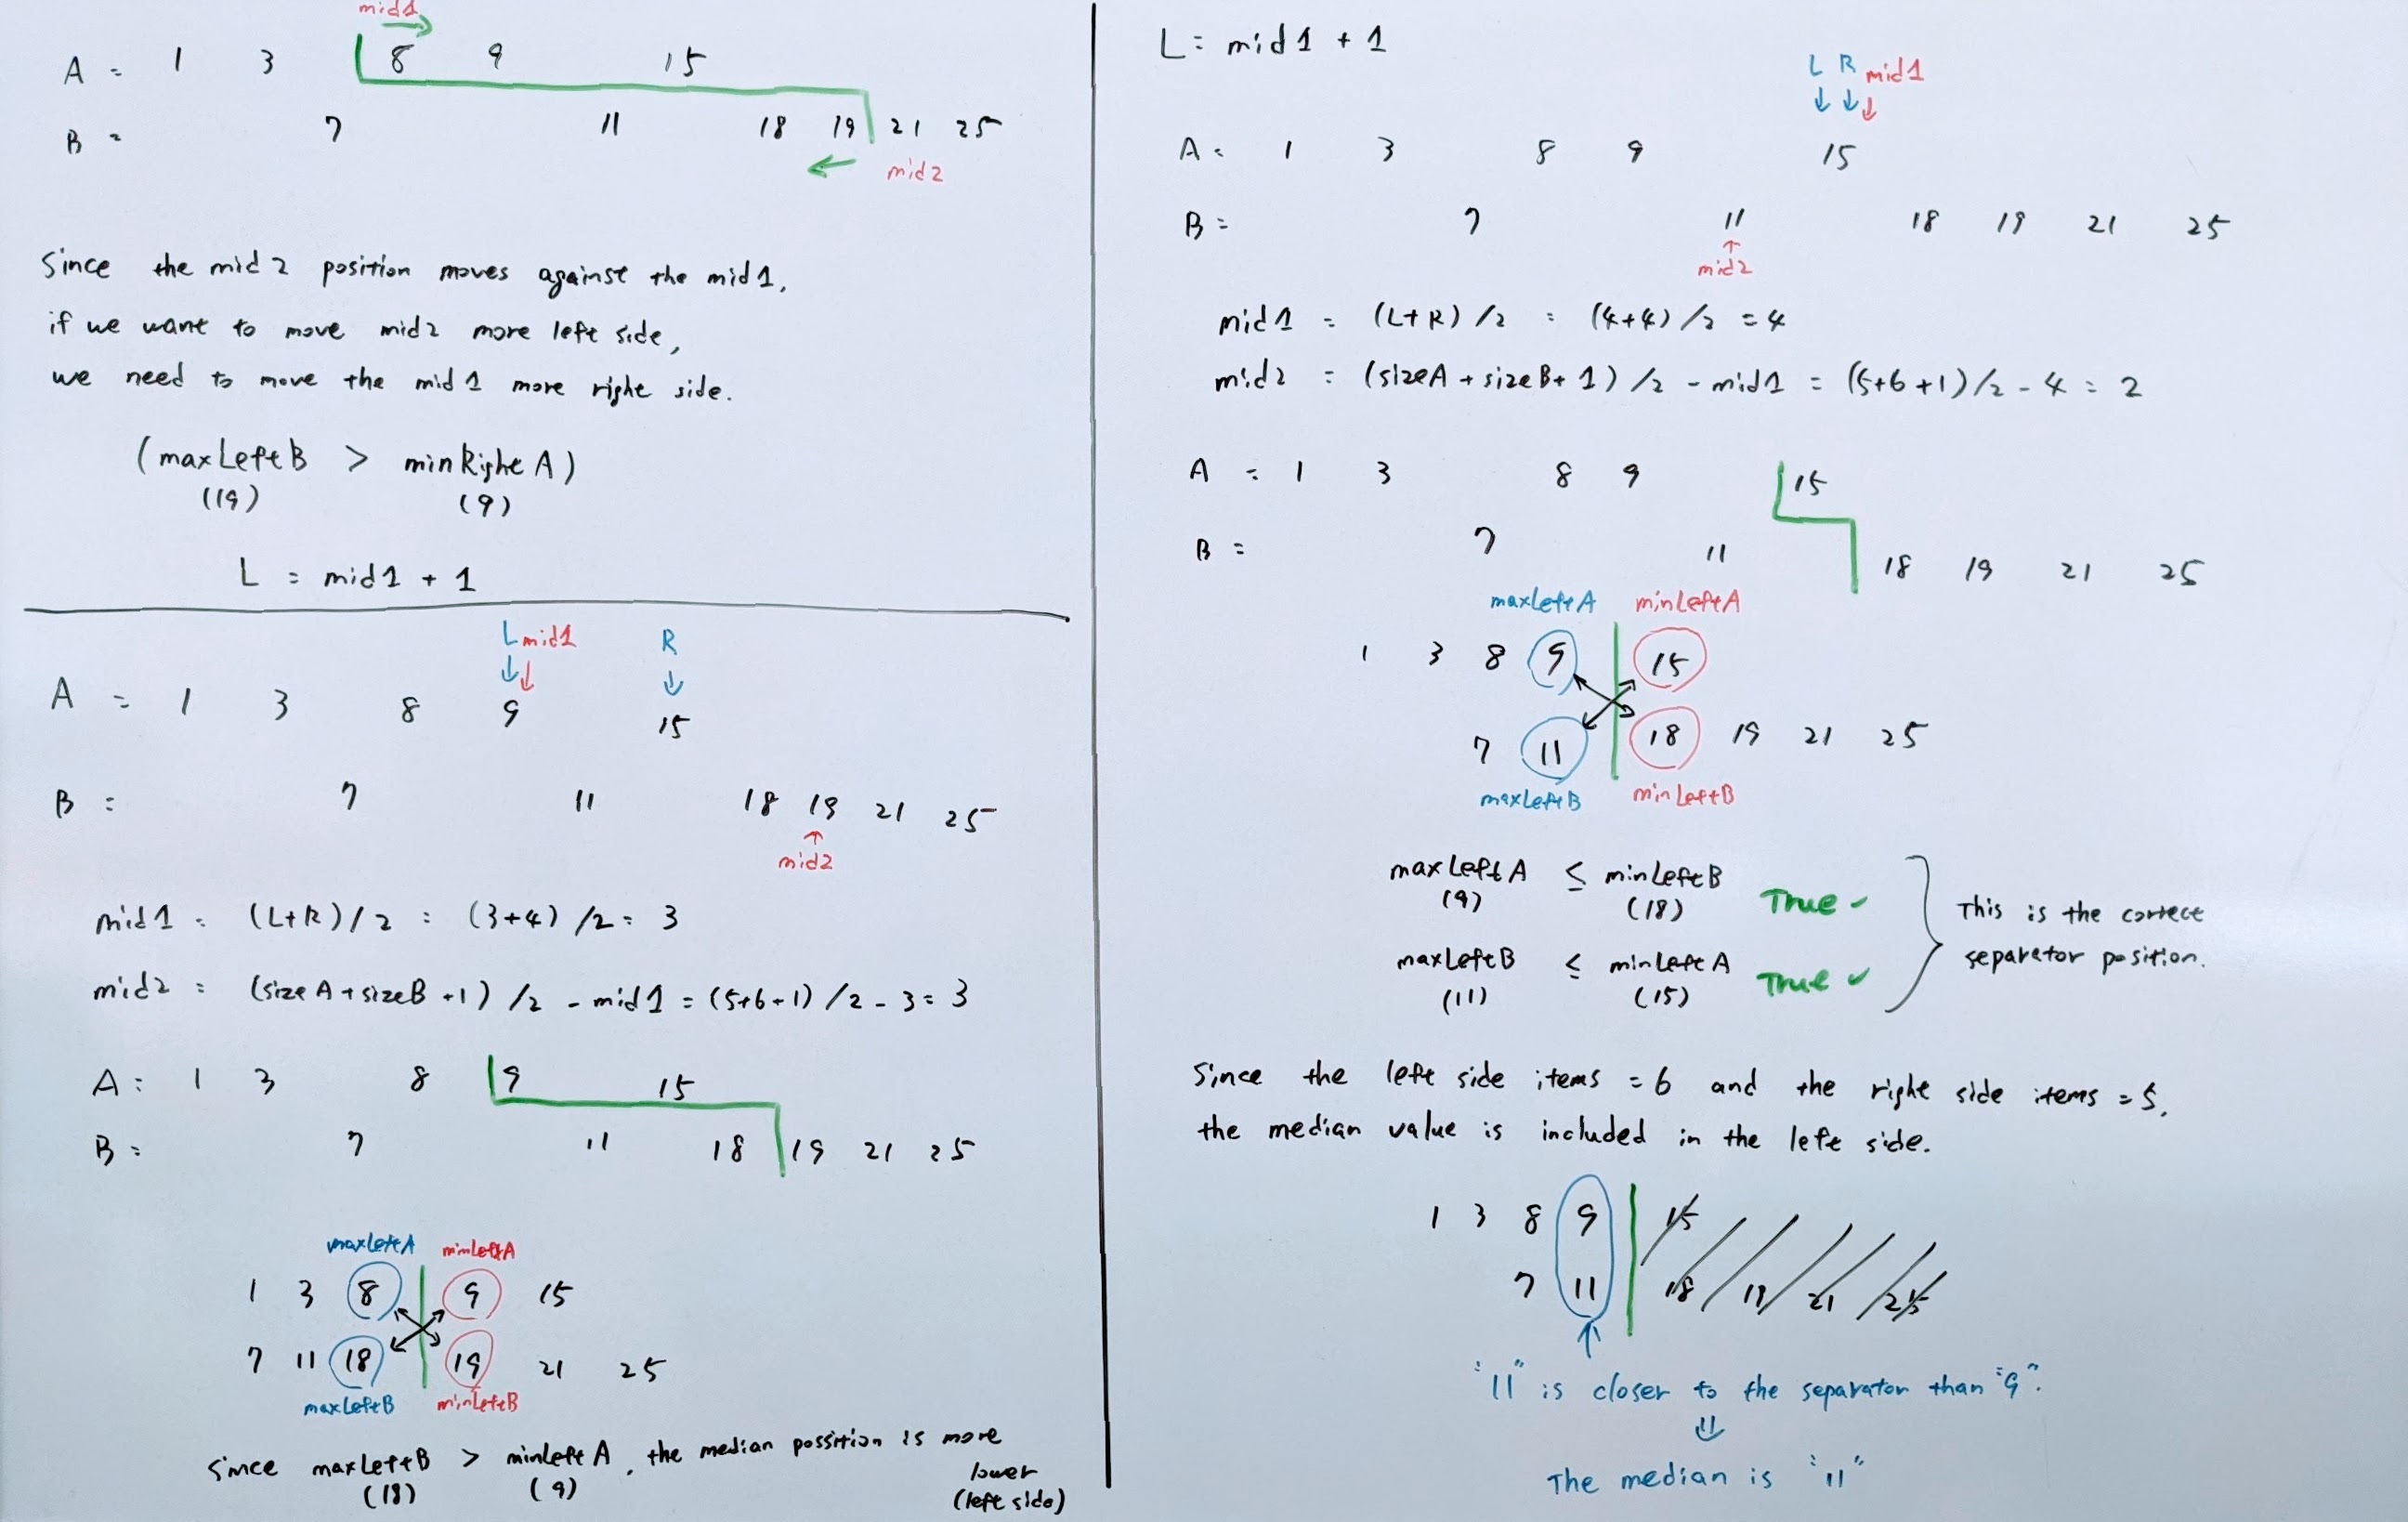 mid1
A = 1 3 8 9 15
B = 7 11 18 19 21 25
mid2
Since the mid2 position moves against the mid1,
if we want to move mid2 more left side,
we need to move the mid1 more right side.
(maxLeftB > minRightA)
(19) (9)
L = mid1 + 1
L mid1 R
A = 1 3 8 9 15
B = 7 11 18 19 21 25
mid2
mid1 = (L+R)/2 = (3+4)/2 = 3
mid2 = (sizeA + sizeB + 1)/2 - mid1 = (5+6+1)/2 - 3 = 3
A = 1 3 8 9 15
B = 7 11 18 19 21 25
maxLeftA minLeftA
1 3 8 9 15
7 11 18 19 21 25
maxLeftB minLeftB
Since maxLeftB > minLeftA, the median possition is more
lower
(18) (9) (left side)
L = mid1 + 1
L R mid1
A = 1 3 8 9 15
B = 7 11 18 19 21 25
mid2
mid1 = (L+R)/2 = (4+4)/2 = 4
mid2 = (sizeA + sizeB + 1)/2 - mid1 = (5+6+1)/2 - 4 = 2
A = 1 3 8 9 15
B = 7 11 18 19 21 25
maxLeftA minLeftA
1 3 8 9 15
7 11 18 19 21 25
maxLeftB minLeftB
maxLeftA ≤ minLeftB True ✓
(9) (18)
maxLeftB ≤ minLeftA True ✓
(11) (15)
This is the correct
separator position.
Since the left side items = 6 and the right side items = 5,
the median value is included in the left side.
1 3 8 9 15
7 11 18 19 21 25
"11" is closer to the separator than "9".
⇓
The median is "11"